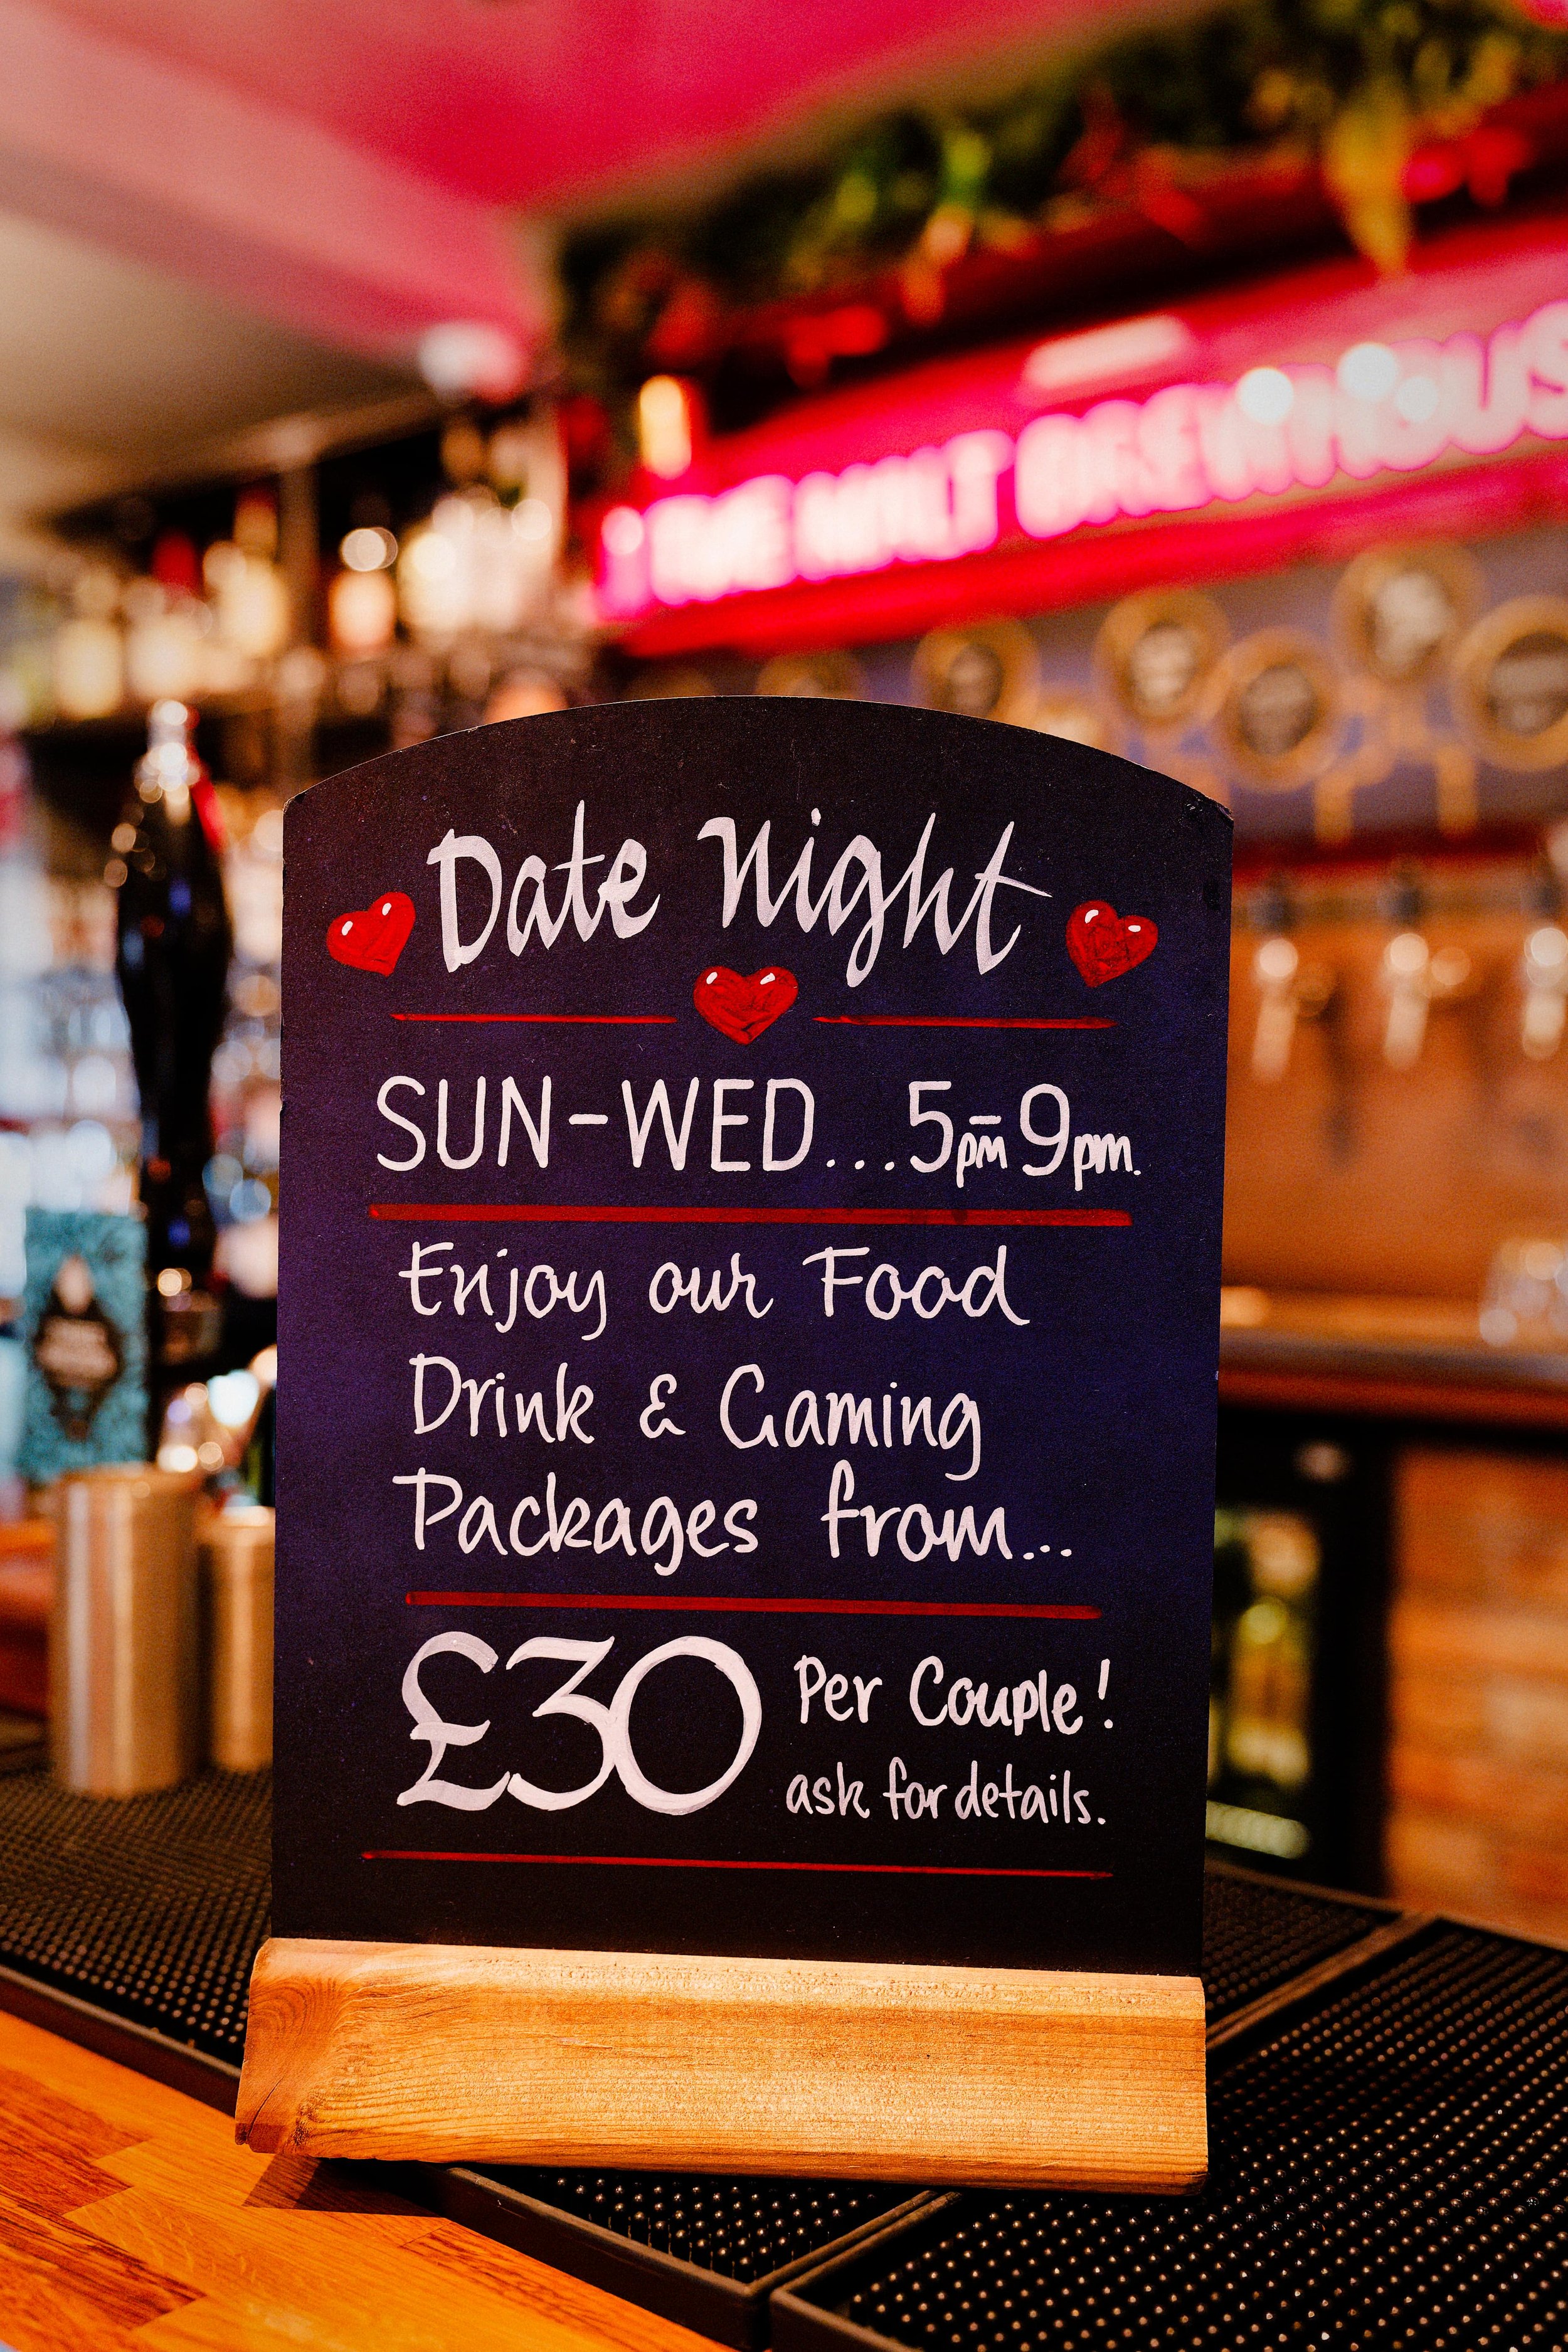 THE WILT BREWHOUS
Date Night
SUN-WED...5pm-9pm.
Enjoy our Food
Drink & Gaming
Packages from...
£30 Per Couple!
ask for details.